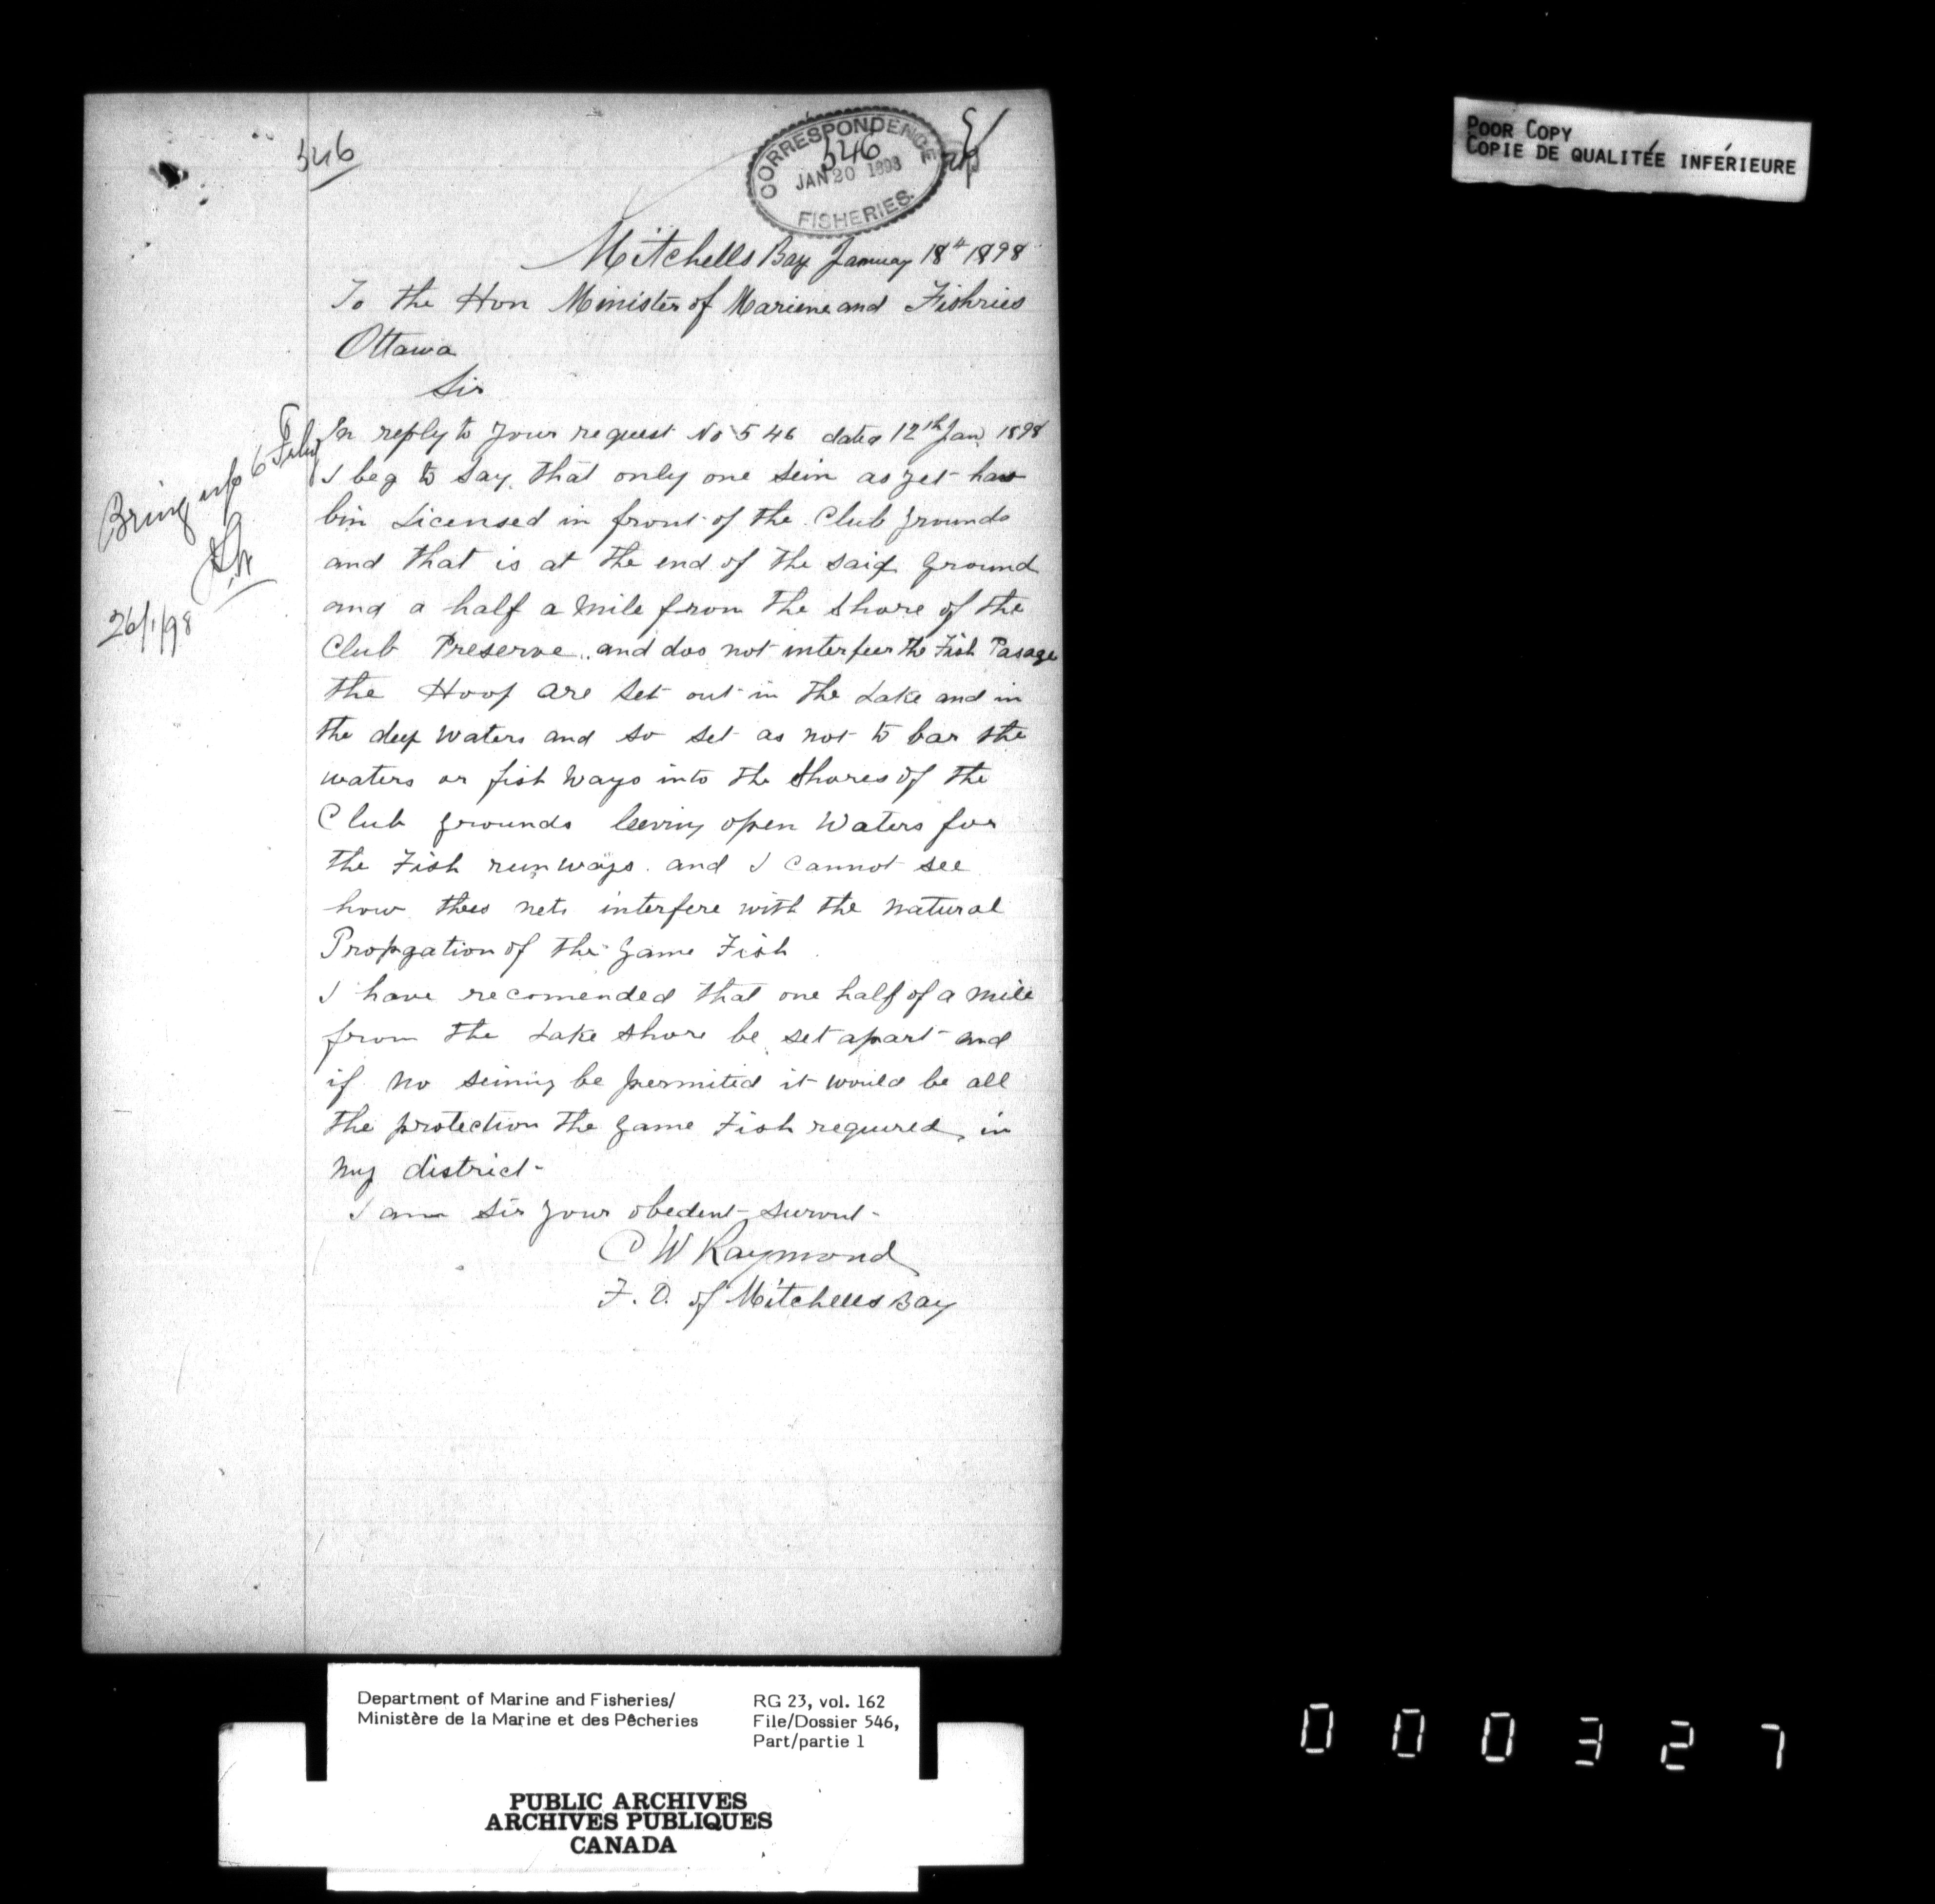 546
CORRESPONDENCE
546
JAN 20 1898
FISHERIES.
Mitchells Bay January 18th 1898
To the Hon Minister of Mariene and Fishries
Ottawa
Sir
In reply to your request No 546 dated 12th Jan 1898
I beg to say that only one sein as yet has
bin Licensed in front of the Club grounds
and that is at the end of the said ground
and a half a mile from the shore of the
Club Preserve. and dos not interfeer the Fish Pasage
the Hoop are set out in the Lake and in
the deep waters and so set as not to bar the
waters or fish ways into the Shores of the
Club grounds leeving open Waters for
the Fish runways. and I cannot see
how thees nets interfere with the natural
Propgation of the game Fish
I have recomended that one half of a mile
from the Lake shore be set apart and
if no seining be permited it would be all
the protection the game Fish required in
my district-
I am Sir your obedent servent-
C W Raymond
F. O. of Mitchells Bay
Bring up 6 Feby
26/1/98
POOR COPY
COPIE DE QUALITÉE INFÉRIEURE
Department of Marine and Fisheries/
Ministère de la Marine et des Pêcheries
RG 23, vol. 162
File/Dossier 546,
Part/partie 1
PUBLIC ARCHIVES
ARCHIVES PUBLIQUES
CANADA
000327